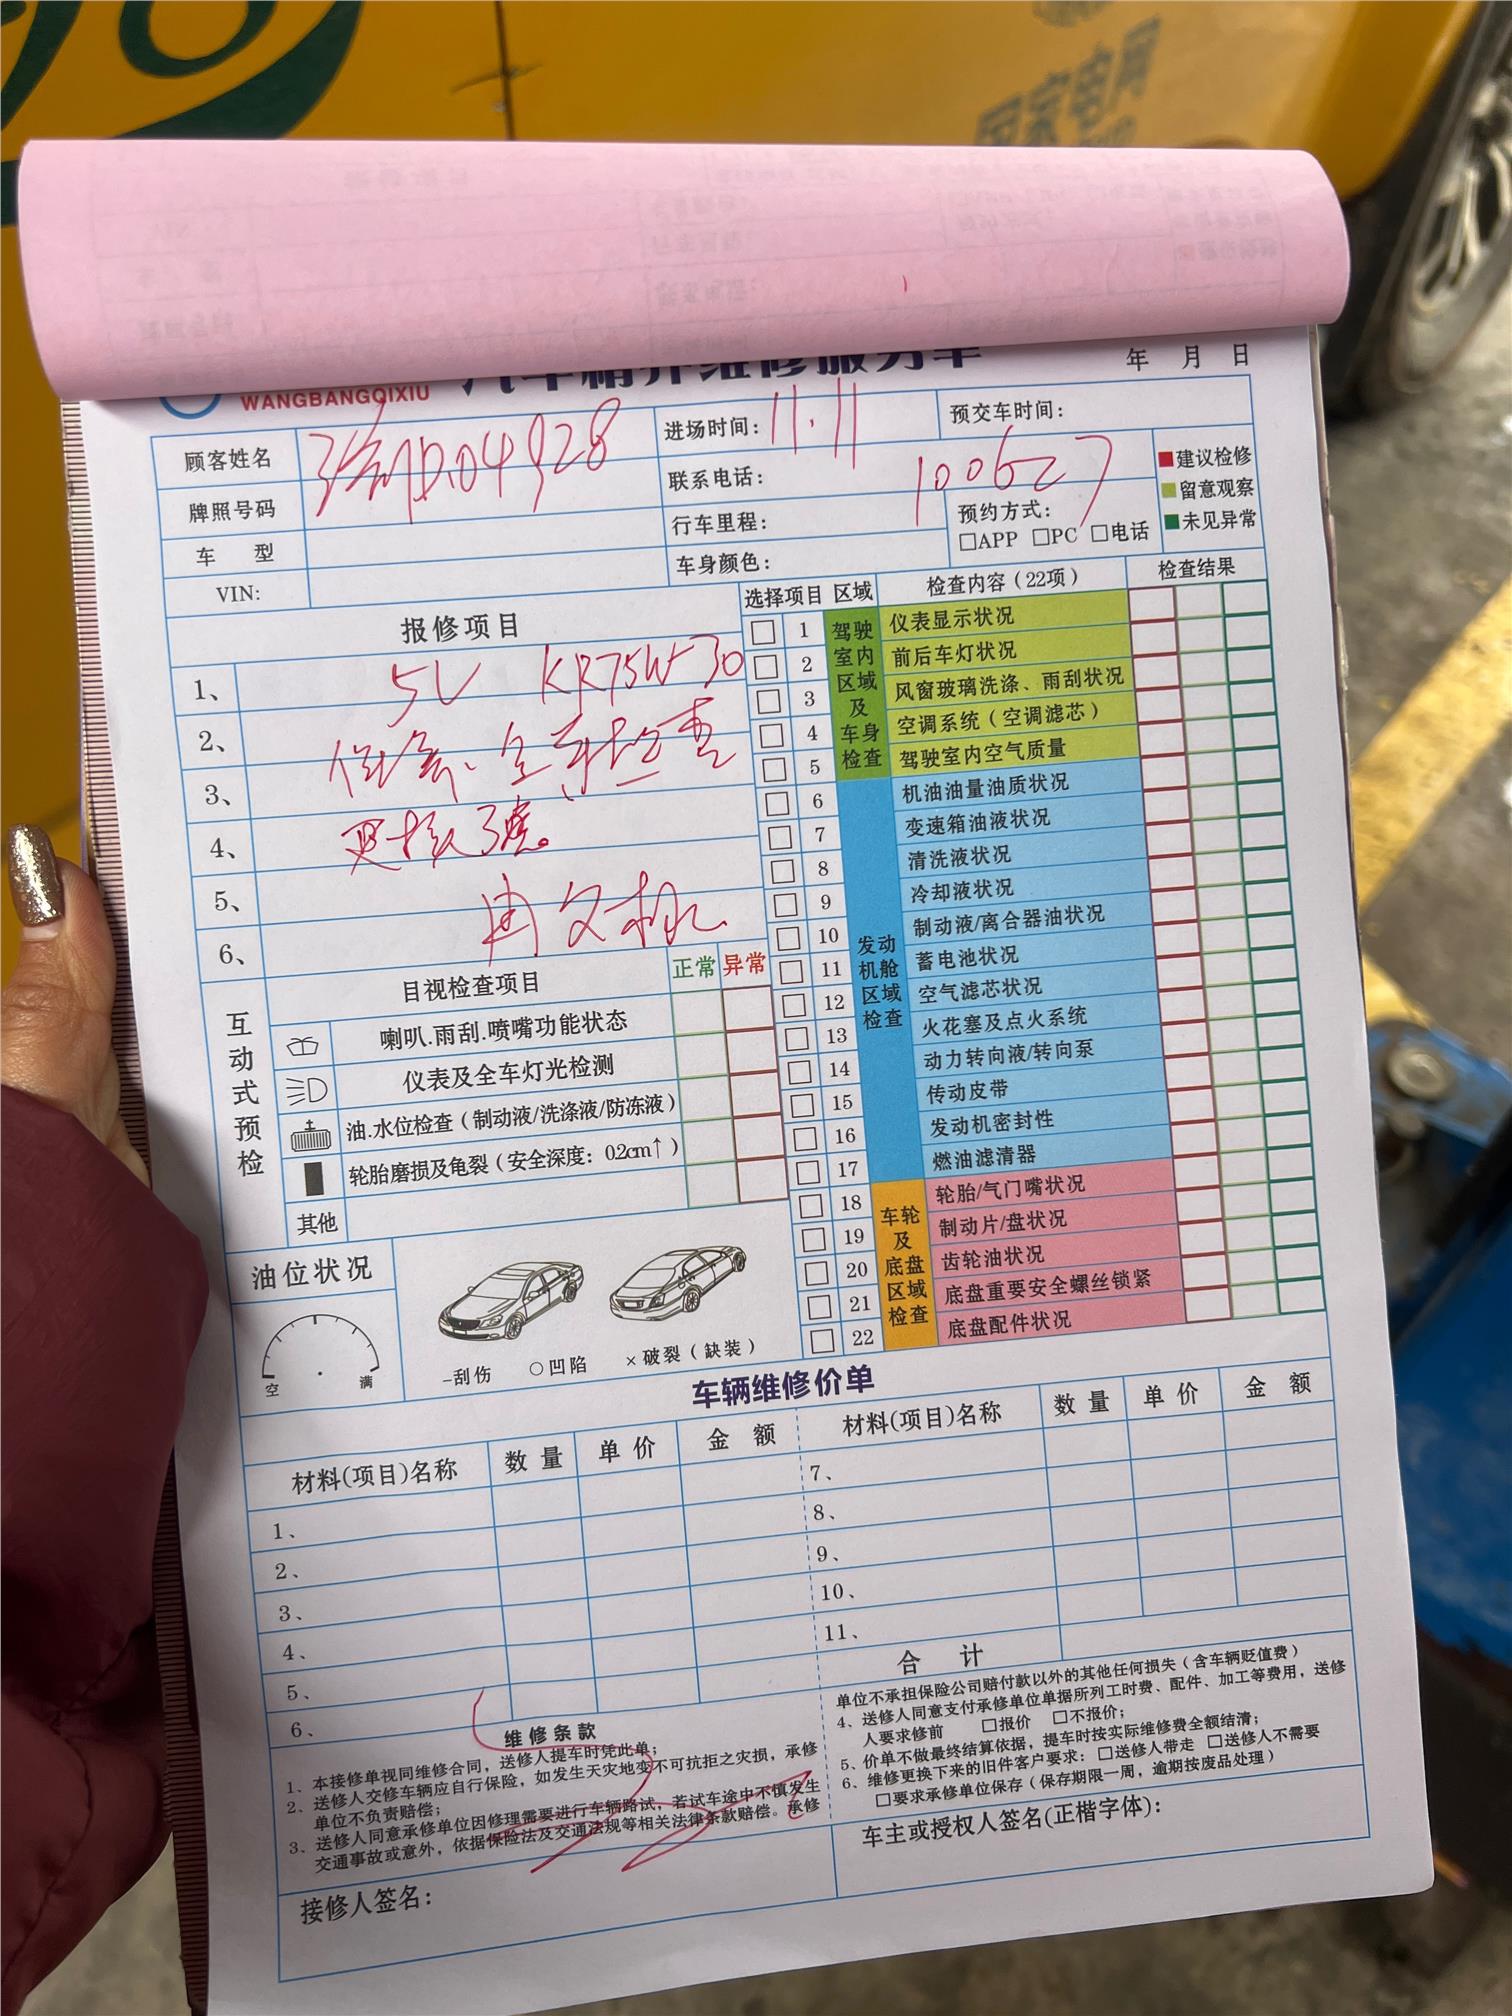 国家电网
汽车精养维修服务单
WANGBANGQIXIU
年 月 日
顾客姓名
进场时间: 11.11
预交车时间:
D04928
牌照号码
联系电话:
100627
车 型
行车里程:
预约方式:
□APP □PC □电话
VIN:
车身颜色:
建议检修
留意观察
未见异常
报修项目
1、 5L KR75W-30
2、
保养、全车检查
3、
4、
5、
6、
选择项目 区域 检查内容(22项) 检查结果
驾驶室内区域及车身检查
1 仪表显示状况
2 前后车灯状况
3 风窗玻璃洗涤、雨刮状况
4 空调系统(空调滤芯)
5 驾驶室内空气质量
发动机舱区域检查
6 机油油量油质状况
7 变速箱油液状况
8 清洗液状况
9 冷却液状况
10 制动液/离合器油状况
11 蓄电池状况
12 空气滤芯状况
13 火花塞及点火系统
14 动力转向液/转向泵
15 传动皮带
16 发动机密封性
17 燃油滤清器
车轮及底盘区域检查
18 轮胎/气门嘴状况
19 制动片/盘状况
20 齿轮油状况
21 底盘重要安全螺丝锁紧
22 底盘配件状况
互动式预检
目视检查项目 正常 异常
喇叭.雨刮.喷嘴功能状态
仪表及全车灯光检测
油.水位检查(制动液/洗涤液/防冻液)
轮胎磨损及龟裂(安全深度: 0.2cm↑)
其他
油位状况
空 满
-刮伤 ○凹陷 ×破裂(缺装)
车辆维修价单
材料(项目)名称 数量 单价 金额 材料(项目)名称 数量 单价 金额
1、 7、
2、 8、
3、 9、
4、 10、
5、 11、
6、 合 计
维修条款
1、本接修单视同维修合同，送修人提车时凭此单；
2、送修人交修车辆应自行保险，如发生天灾地变不可抗拒之灾损，承修
单位不负责赔偿；
3、送修人同意承修单位因修理需要进行车辆路试，若试车途中不慎发生
交通事故或意外，依据保险法及交通法规等相关法律条款赔偿。承修
单位不承担保险公司赔付款以外的其他任何损失(含车辆贬值费)
4、送修人同意支付承修单位单据所列工时费、配件、加工等费用，送修
人要求修前 □报价 □不报价；
5、价单不做最终结算依据，提车时按实际维修费全额结清；
6、维修更换下来的旧件客户要求：□送修人带走 □送修人不需要
□要求承修单位保存(保存期限一周，逾期按废品处理)
接修人签名：
车主或授权人签名(正楷字体)：